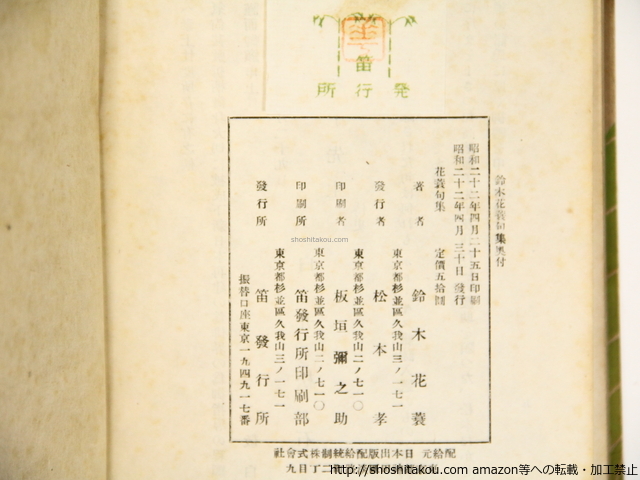 笛
発行所
鈴木花蓑句集奥付
昭和二十二年四月二十五日印刷
昭和二十二年四月三十日發行
花蓑句集 定價五拾圓
著者
東京都杉並區久我山三ノ一七一
鈴木花蓑
發行者
東京都杉並區久我山二ノ七一〇
松本孝
印刷者
東京都杉並區久我山二ノ七一〇
板垣彌之助
印刷所
東京都杉並區久我山三ノ一七一
笛發行所印刷部
發行所
笛發行所
振替口座東京一九四九一七番
配給元 日本出版配給統制株式會社
shoshitakou.com
http://shoshitakou.com amazon等への転載・加工禁止